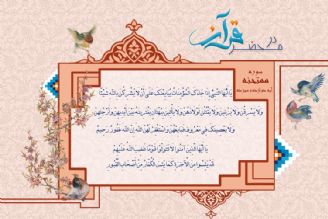 در محضر قرآن
سوره
ممتحنه
يا أيها النبي إذا جاءك المؤمنات يبايعنك على أن لا يشركن بالله شيئا
ولا يسرقن ولا يزنين ولا يقتلن أولادهن ولا يأتين ببهتان يفترينه بين أيديهن وأرجلهن
ولا يعصينك في معروف فبايعهن واستغفر لهن الله إن الله غفور رحيم
يا أيها الذين آمنوا لا تتولوا قوما غضب الله عليهم
قد يئسوا من الآخرة كما يئس الكفار من أصحاب القبور